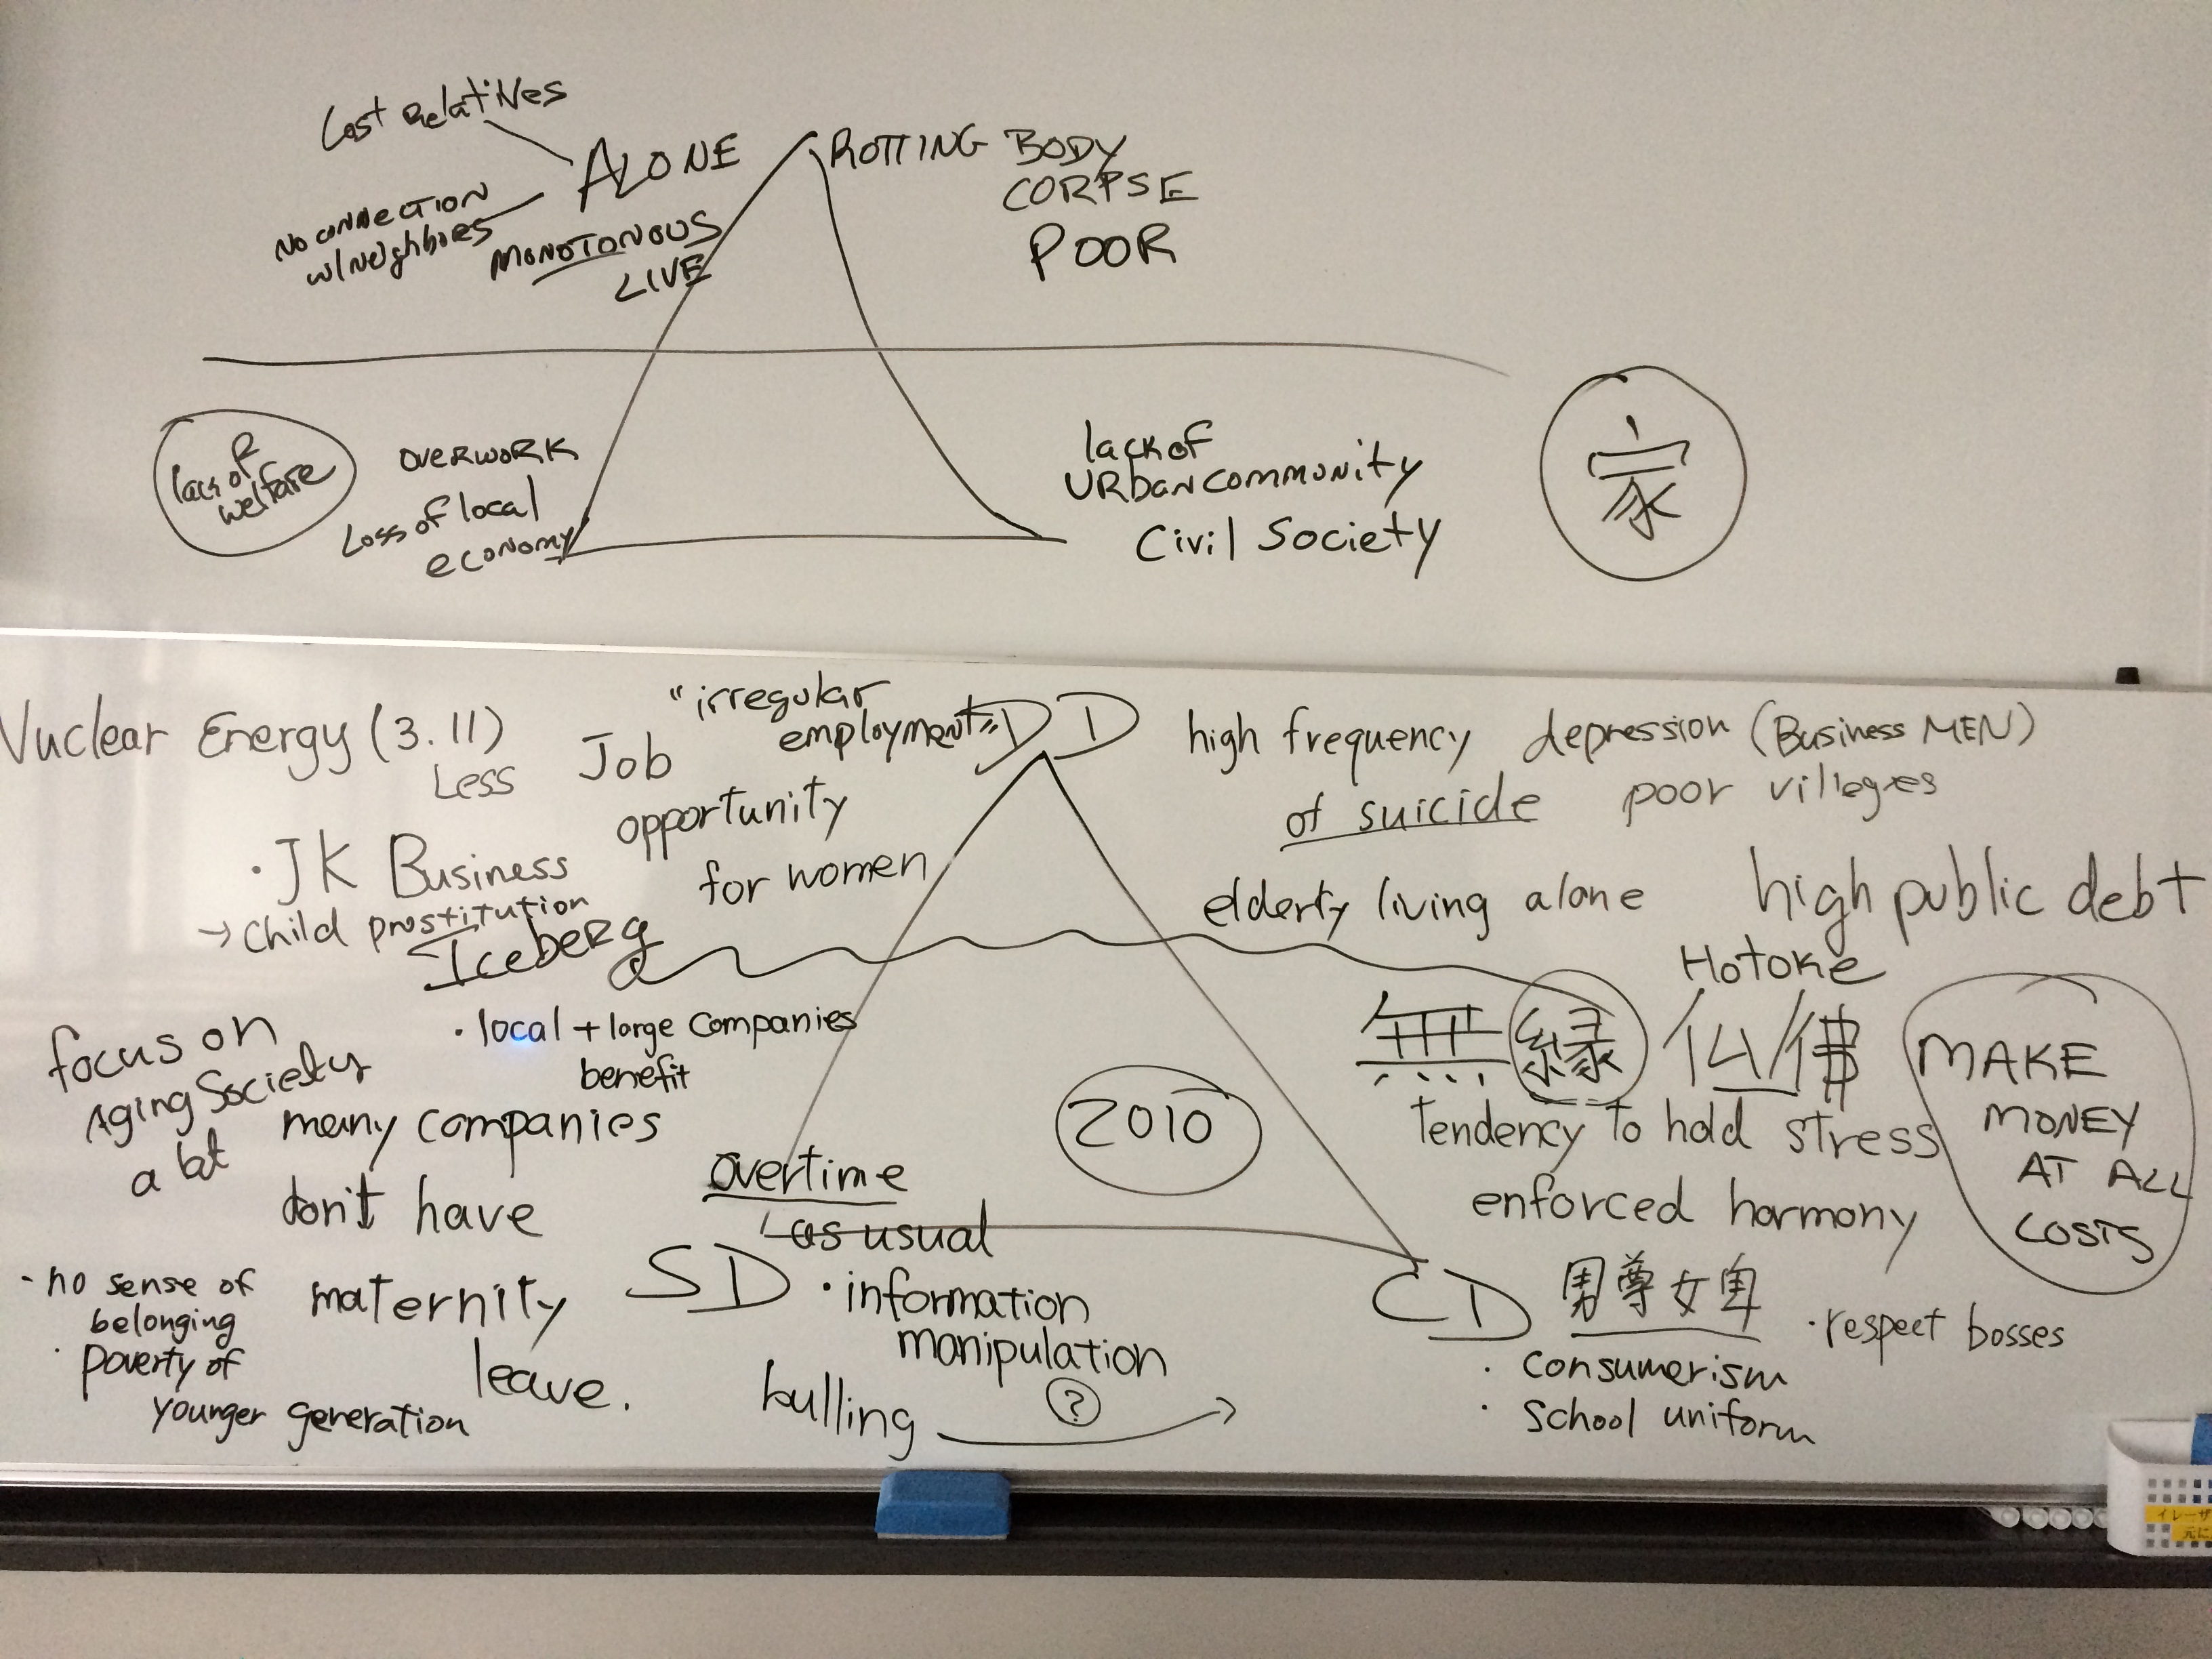 Lost Relatives
ALONE
ROTTING BODY
CORPSE
POOR
NO CONNECTION
w/Neighbores
MONOTONOUS
LIVE
lack of
welfare
OVERWORK
Loss of local
economy
lack of
URban community
Civil Society
家
Nuclear Energy (3.11)
"irregular
employment"
DD
Less Job
opportunity
for women
high frequency
of suicide
depression (Business MEN)
poor villeges
・JK Business
→ child prostitution
elderty living alone
high public debt
Iceberg
・local + large companies
benefit
Hotoke
無縁 仏/佛
MAKE
MONEY
AT ALL
COSTS
focus on
Aging Society
a lot
many companies
don't have
maternity
leave.
2010
tendency to hold stress
enforced harmony
overtime
as usual
SD
・information
manipulation
?
bulling
- no sense of
belonging
・poverty of
younger generation
CD
男尊女卑
・respect bosses
・consumerism
・school uniform
イレーザ
元に